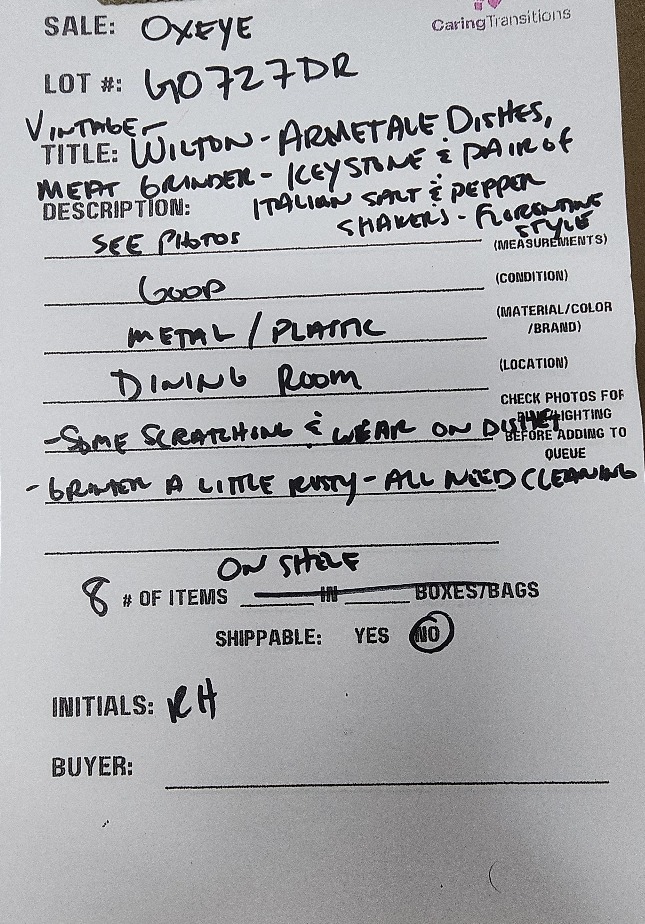 CaringTransitions
SALE: OXEYE
LOT #: GO727DR
VINTAGE -
TITLE: WILTON - ARMETALE DISHES,
MEAT GRINDER - KEYSTONE & PAIR OF
DESCRIPTION: ITALIAN SALT & PEPPER
SHAKERS - FLORENTINE
STYLE
SEE PHOTOS (MEASUREMENTS)
GOOD (CONDITION)
METAL / PLASTIC (MATERIAL/COLOR
/BRAND)
DINING ROOM (LOCATION)
CHECK PHOTOS FOR
LIGHTING
- SOME SCRATCHING & WEAR ON BEFORE ADDING TO
QUEUE
- GRINDER A LITTLE RUSTY - ALL NEED CLEANING
ON SHELF
8 # OF ITEMS IN BOXES/BAGS
SHIPPABLE: YES NO
INITIALS: RH
BUYER: